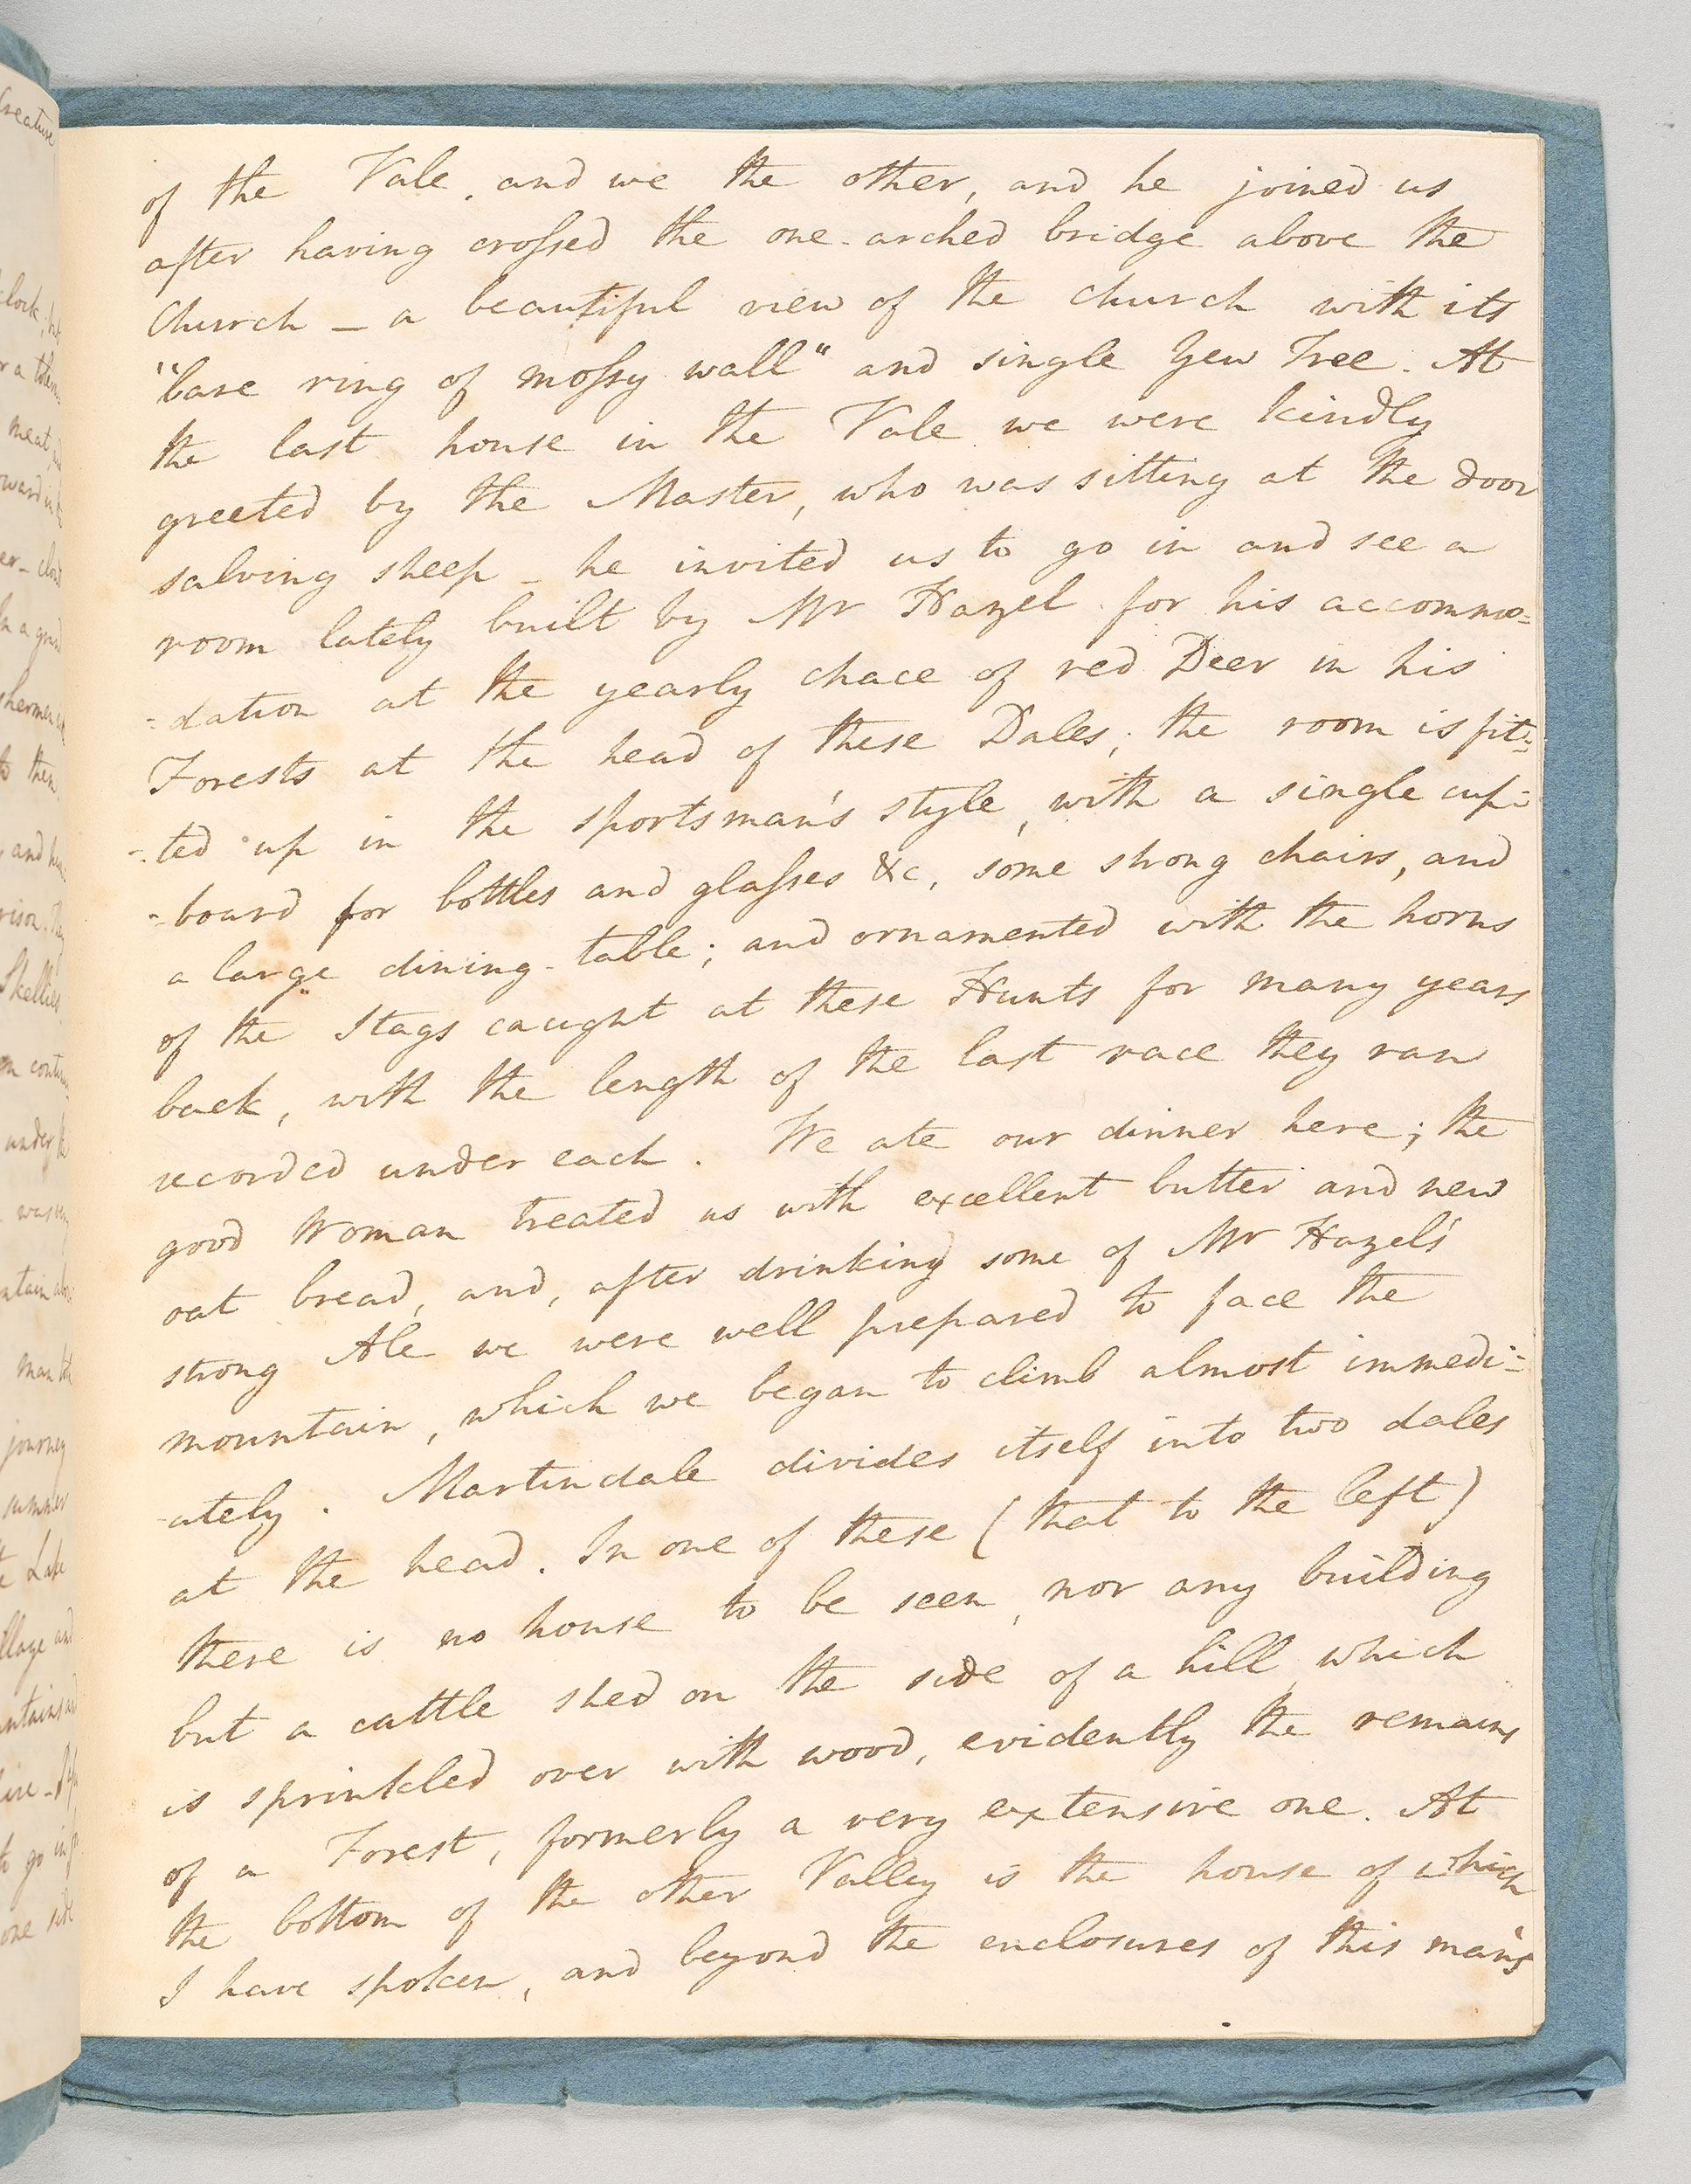 of the Vale, and we the other, and he joined us
after having croſsed the one-arched bridge above the
Church – a beautiful view of the church with its
"bare ring of moſsy wall" and single Yew Tree. At
the last house in the Vale we were kindly
greeted by the Master, who was sitting at the door
salving sheep – he invited us to go in and see a
room lately built by Mr Hazel for his accommo=
=dation at the yearly chace of red Deer in his
Forests at the head of these Dales; the room is fit=
=ted up in the sportsman's style, with a single cup=
=board for bottles and glaſses &c, some strong chairs, and
a large dining-table; and ornamented with the horns
of the Stags caught at these Hunts for many years
back, with the length of the last race they ran
recorded under each. We ate our dinner here; the
good Woman treated us with excellent butter and new
oat bread, and, after drinking some of Mr Hazel's
strong Ale we were well prepared to face the
mountain, which we began to climb almost immedi=
-ately. Martindale divides itself into two dales
at the head. In one of these (that to the left)
there is no house to be seen, nor any building
but a cattle shed on the side of a hill which
is sprinkled over with wood, evidently the remains
of a Forest, formerly a very extensive one. At
the bottom of the other Valley is the house of which
I have spoken, and beyond the enclosures of this man's